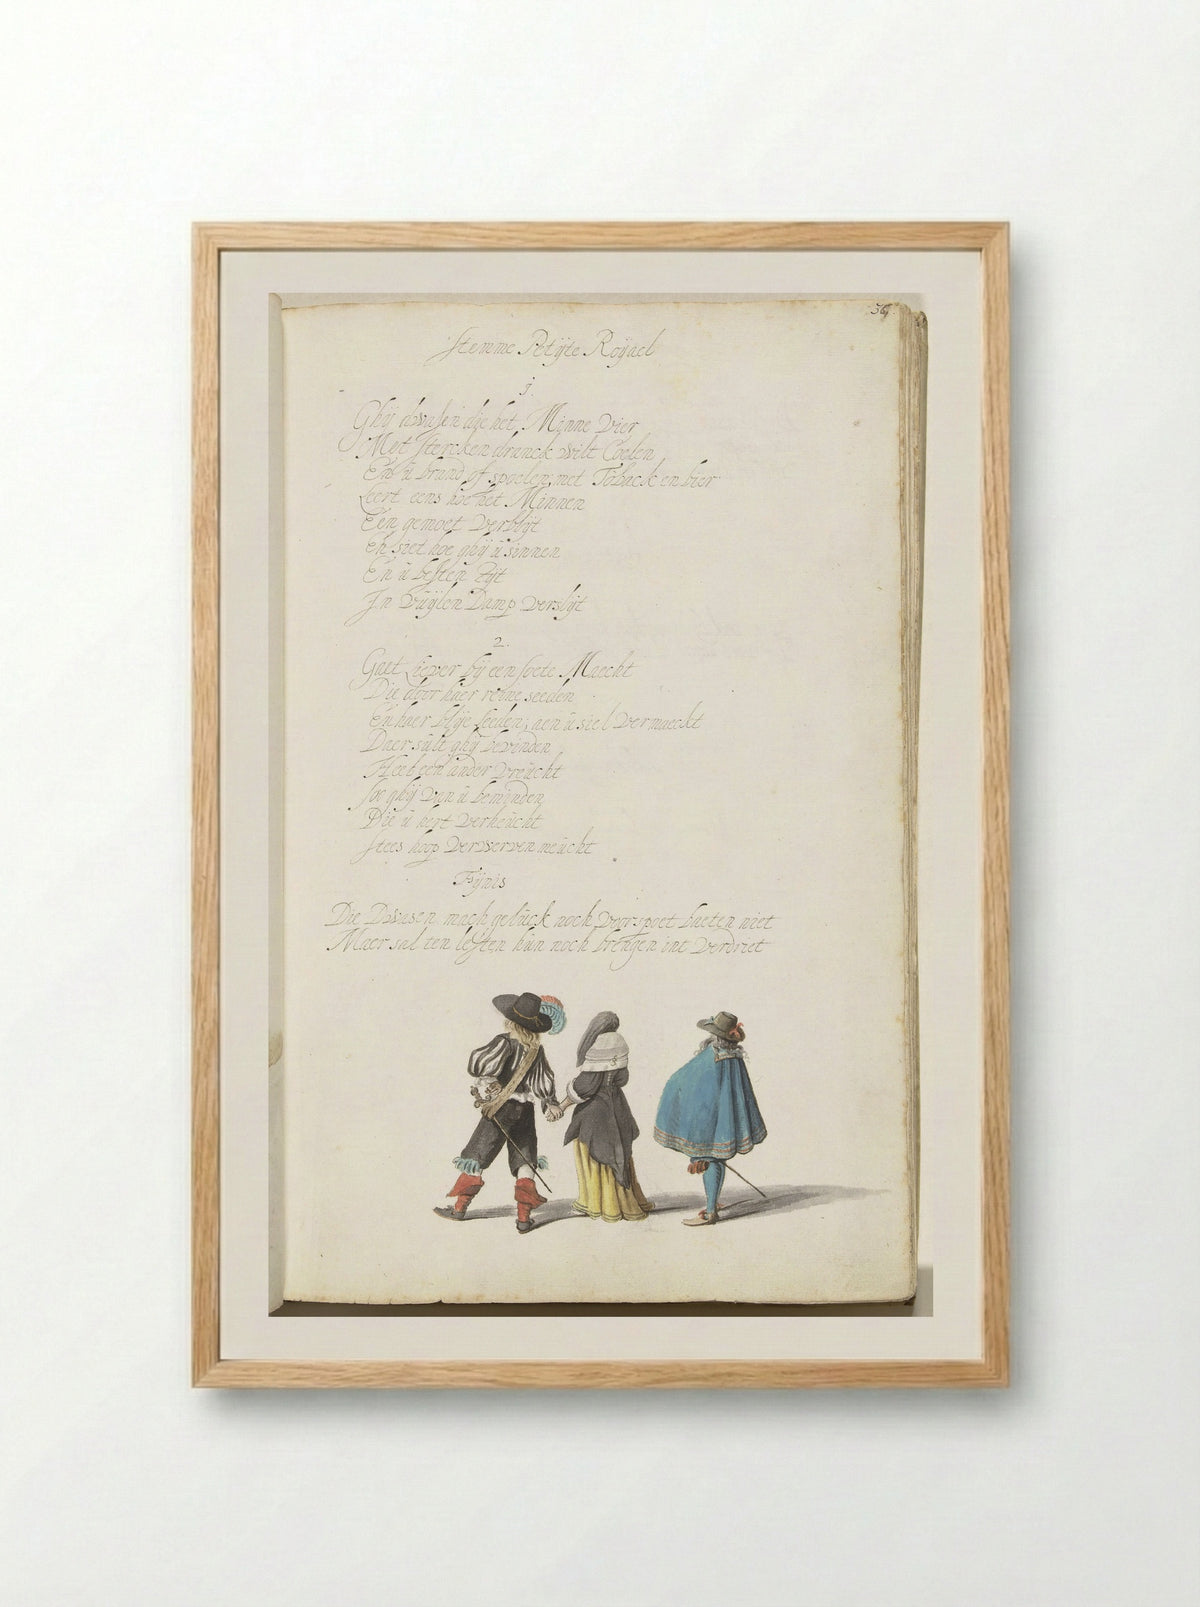 36
Stemme Petijte Roijael
1
Ghij dwasen die het Minne Vier
Met stercken dranck wilt Coelen
En u brand of spoelen, met Toback en bier
Leert eens hoe het Minnen
Een gemoet Verblijt
En siet hoe ghij u sinnen
En u besten Tijt
In Vuijlen Damp Verslijt
2
Gaet Liever bij een soete Maecht
Die door haer reine seeden
En haer blije Leeden, aen u siel Vermaeckt
Daer sult ghij bevinden
Heel een ander Vreucht
soe ghij Van u beminden
Die u hert Verheucht
stees hoop Verwerven meucht
Fijnis
Die Dwasen mach geluck noch Voorspoet baeten niet
Maer sal ten lesten hun noch brengen int Verdriet